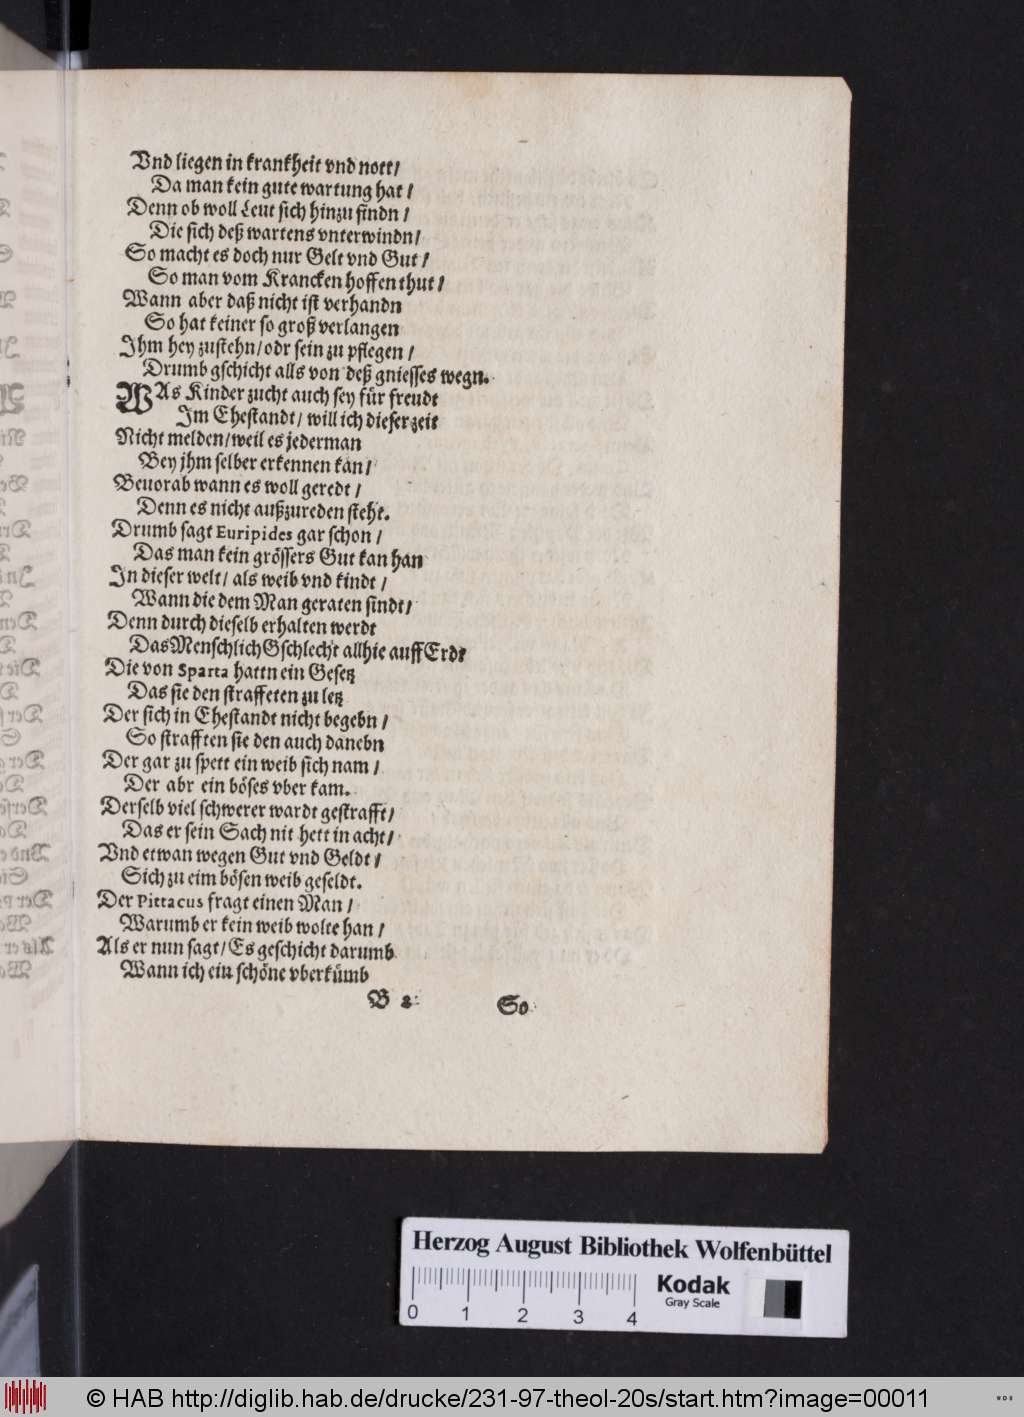 Vnd liegen in krankheit vnd nott/
Da man kein gute wartung hat/
Denn ob woll Leut sich hinzu findn/
Die sich deß wartens vnterwindn/
So macht es doch nur Gelt vnd Gut/
So man vom Krancken hoffen thut/
Wann aber daß nicht ist verhandn
So hat keiner so groß verlangen
Ihm hey zustehn/odr sein zu pflegen/
Drumb gschicht alls von deß gniesses wegn.
WAs Kinder zucht auch sey für freudt
Im Ehestandt/ will ich dieser zeit
Nicht melden/weil es jederman
Bey jhm selber erkennen kan/
Beuorab wann es woll geredt/
Denn es nicht außzureden steht.
Drumb sagt Euripides gar schon/
Das man kein grössers Gut kan han
In dieser welt/ als weib vnd kindt/
Wann die dem Man geraten sindt/
Denn durch dieselb erhalten werdt
Das Menschlich Gschlecht allhie auff Erdt
Die von Sparta hattn ein Gesetz
Das sie den straffeten zu letz
Der sich in Ehestandt nicht begebn/
So strafften sie den auch danebn
Der gar zu spett ein weib sich nam/
Der abr ein böses vber kam.
Derselb viel schwerer wardt gestrafft/
Das er sein Sach nit hett in acht/
Vnd etwan wegen Gut vnd Geldt/
Sich zu eim bösen weib geseldt.
Der Pittacus fragt einen Man/
Warumb er kein weib wolte han/
Als er nun sagt/Es geschicht darumb
Wann ich ein schöne vberkümb
B 2 So
Herzog August Bibliothek Wolfenbüttel
Kodak
Gray Scale
0 1 2 3 4
© HAB http://diglib.hab.de/drucke/231-97-theol-20s/start.htm?image=00011